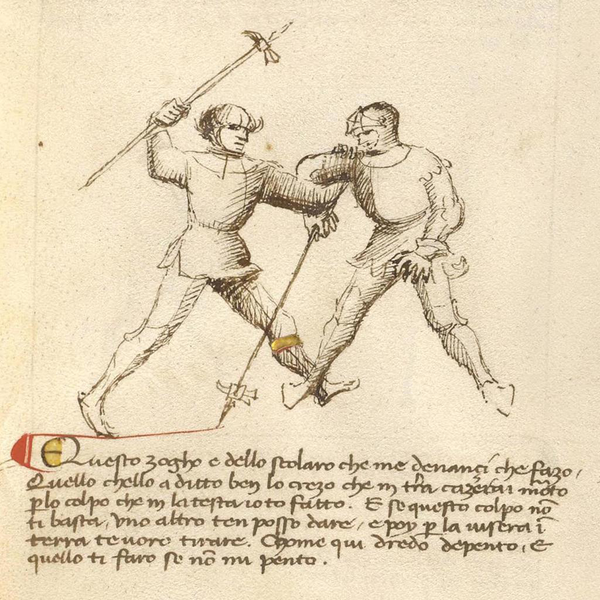 Questo zogho e dello scolaro che me denançi che fazo,
Quello chello a ditto ben lo crezo che in tˀra cazerai moˀto
ꝑlo colpo che in la testa io to fatto. E se questo colpo nō
ti basta, uno altro ten posso dare, e poy ꝑ la visera ī
terra te voio tirare. Chome qui dredo depento, E
quello ti faro se nō mi pento.